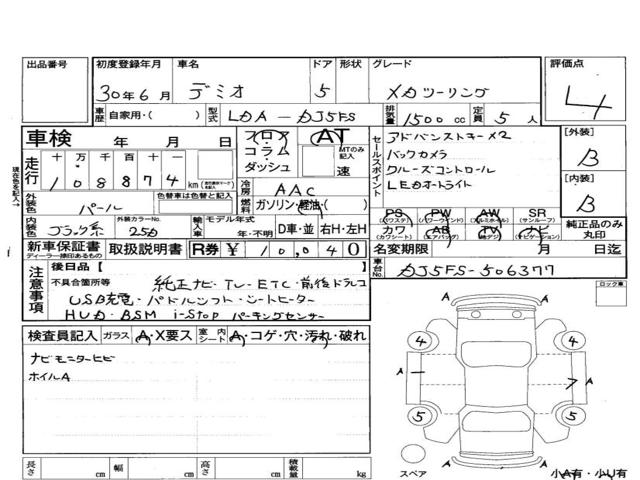 出品番号 初度登録年月 車名 ドア 形状 グレード 評価点
30年6月 デミオ 5 XDツーリング 4
車歴 自家用・( ) 型式 LDA-DJ5FS 排気量 1500cc 定員 5人
車検 年 月 日 フロア・コラム・ダッシュ AT MTのみ記入 速
走行 十 万 千 百 十 一
108874 km
冷房 AAC
外装色 パール 色替車は色替色 燃料 ガソリン・軽油・( )
内装色 ブラック系 外装カラーNo. 25D 輸入車 モデル年式 年・不明 D車・並 右H・左H
新車保証書 ディーラー捺印あるもの 取扱説明書 R券 ¥10,040
セールスポイント
アドバンストキー×2
バックカメラ
クルーズコントロール
LEDオートライト
PS (パワステ) PW (パワーウインド) AW (アルミホイル) SR (サンルーフ)
カワ (カワシート) AB (エアバッグ) TV (純正) ナビ (ナビゲーション)
[外装] B
[内装] B
純正品のみ丸印
名変期限 月 日迄
車台No. DJ5FS-506377
現在色を記入→
注意事項 後日品【
不具合箇所等 純正ナビ・TV・ETC・前後ドラレコ
USB充電・パドルシフト・シートヒーター
HUD・BSM i-stop パーキングセンサー
ロック車
検査員記入 ガラス A・X要ス 室内シート A・コゲ・穴・汚れ・破れ
ナビモニターヒビ
ホイルA
4 4
A A A
5 5
A A
スペア 小A有・小U有
長さ cm 幅 cm 高さ cm 積載量 kg